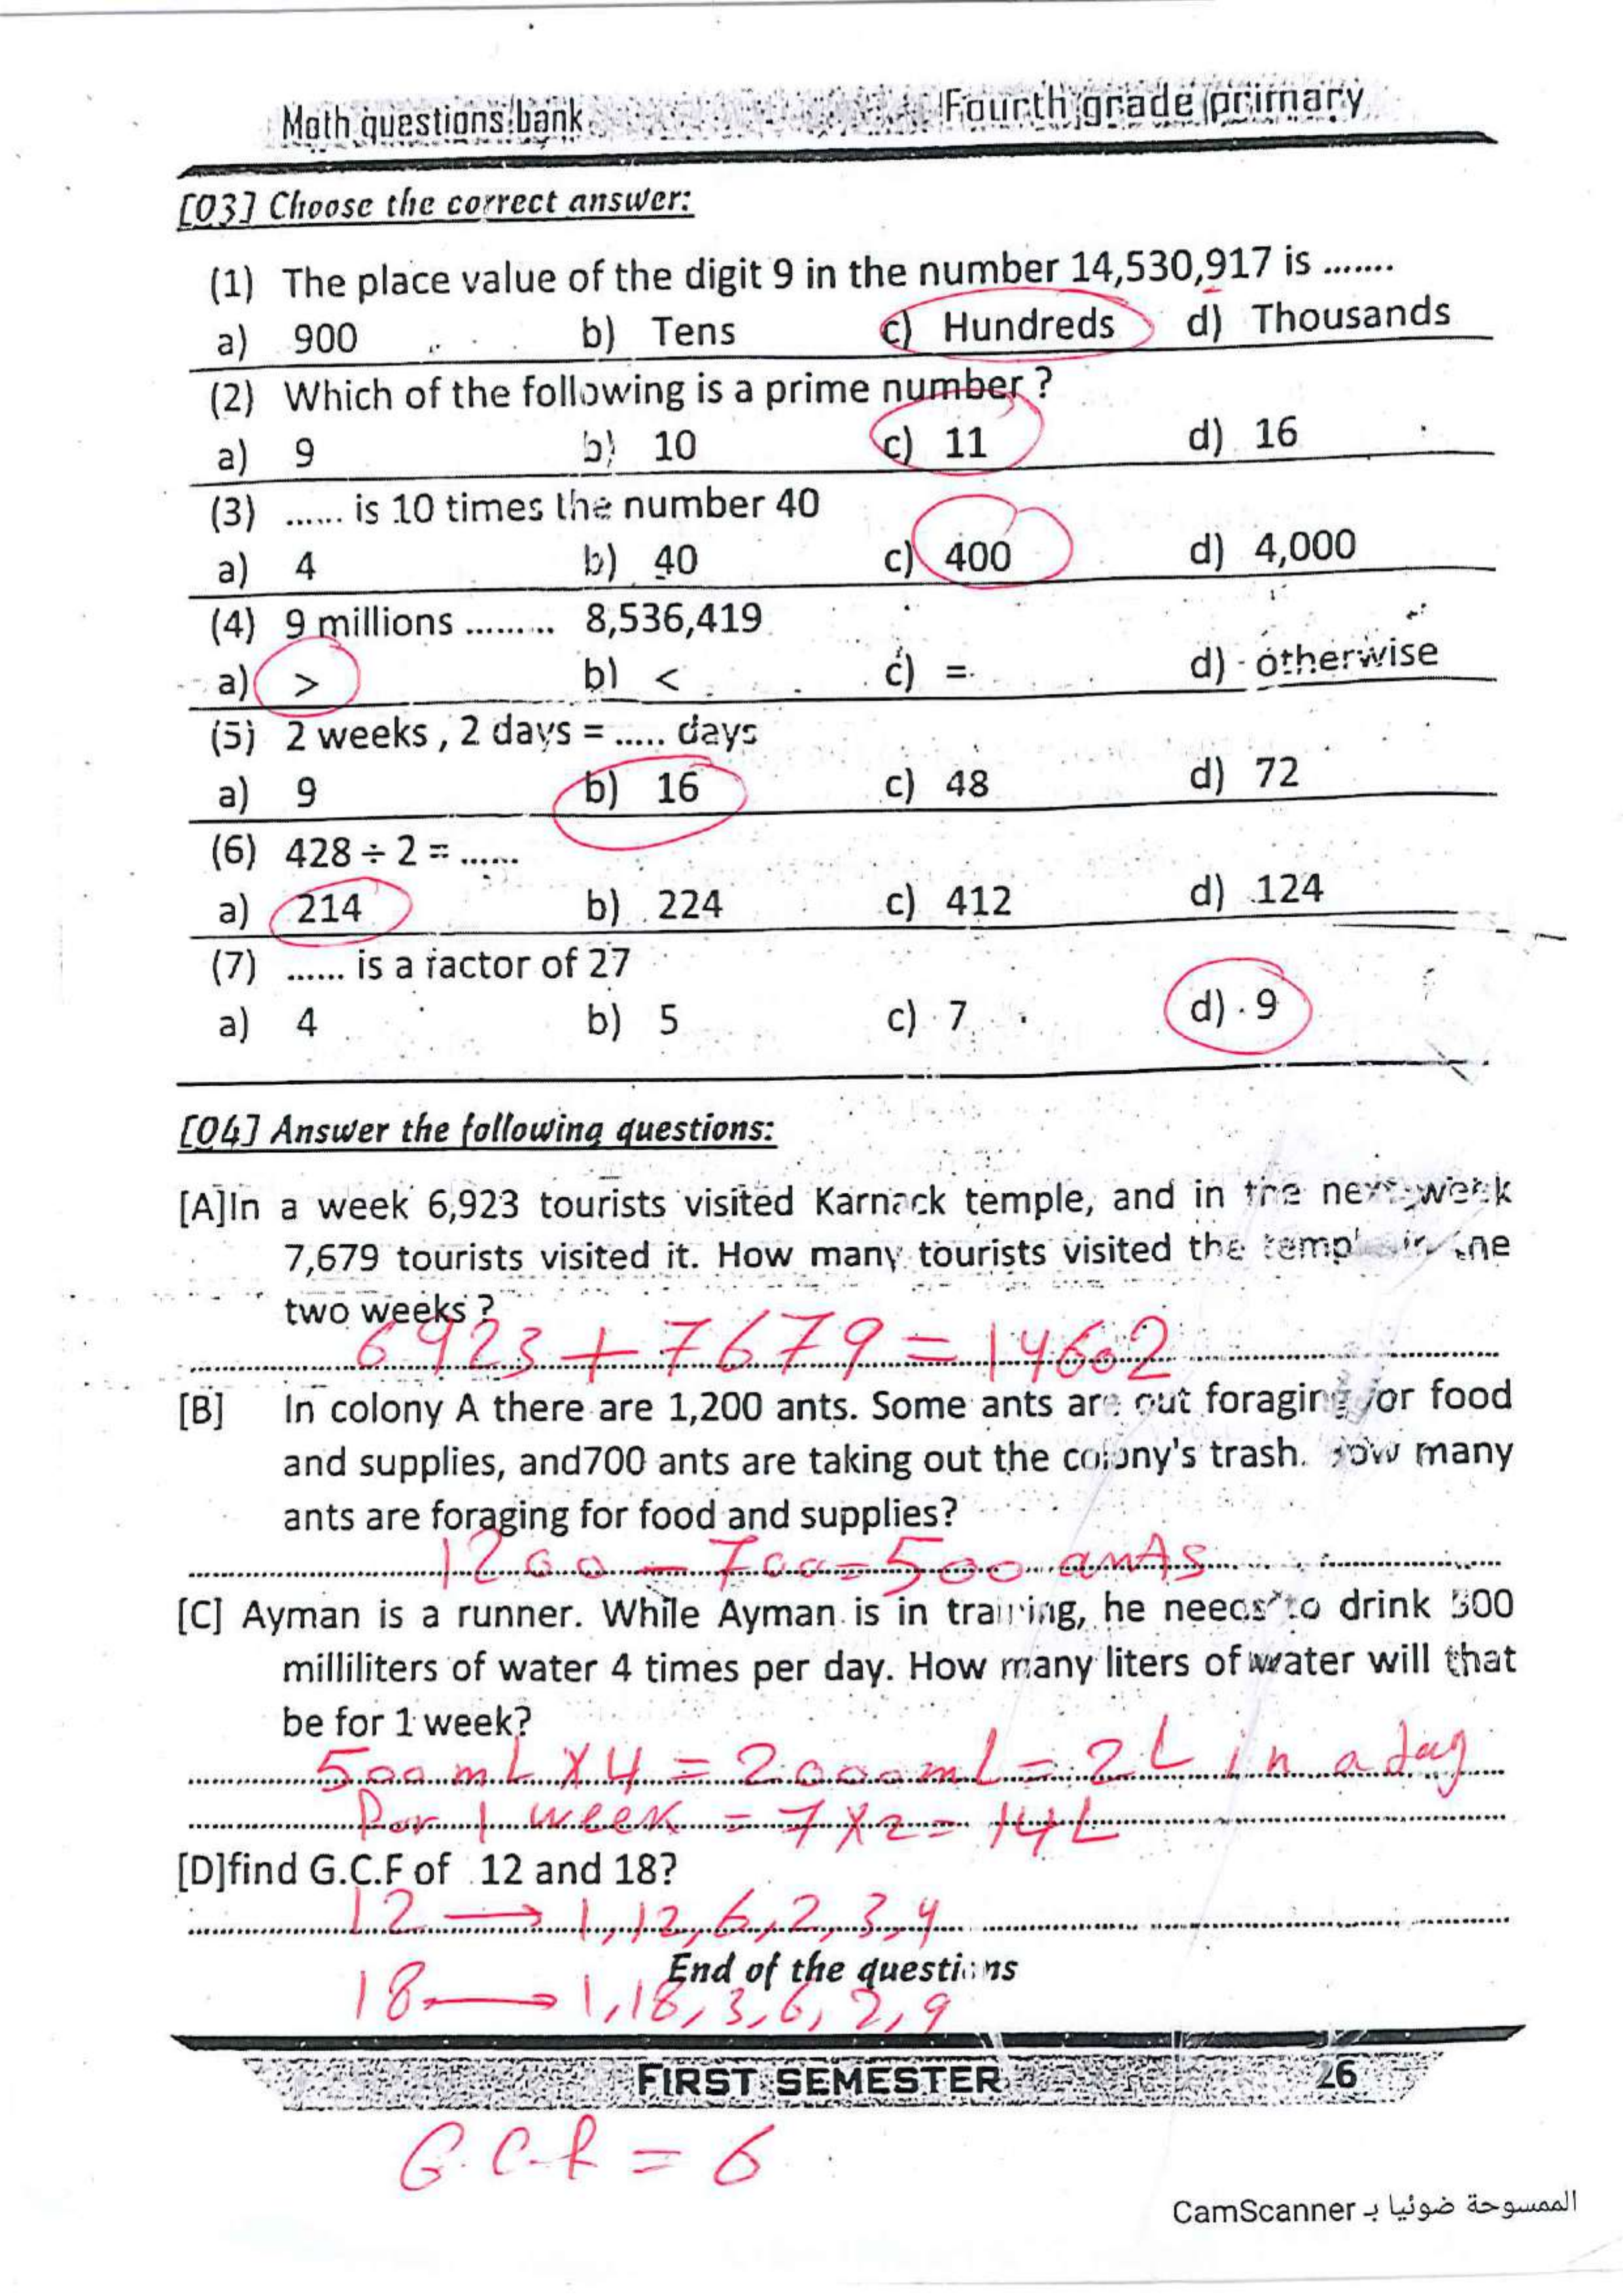 Math questions bank Fourth grade primary
[03] Choose the correct answer:
(1) The place value of the digit 9 in the number 14,530,917 is .......
a) 900 b) Tens c) Hundreds d) Thousands
(2) Which of the following is a prime number ?
a) 9 b) 10 c) 11 d) 16
(3) ...... is 10 times the number 40
a) 4 b) 40 c) 400 d) 4,000
(4) 9 millions ......... 8,536,419
a) > b) < c) = d) otherwise
(5) 2 weeks , 2 days = ..... days
a) 9 b) 16 c) 48 d) 72
(6) 428 ÷ 2 = ......
a) 214 b) 224 c) 412 d) 124
(7) ...... is a factor of 27
a) 4 b) 5 c) 7 d) 9
[04] Answer the following questions:
[A]In a week 6,923 tourists visited Karnack temple, and in the next week
7,679 tourists visited it. How many tourists visited the temple in the
two weeks ?
6923 + 7679 = 14602
[B] In colony A there are 1,200 ants. Some ants are out foraging for food
and supplies, and700 ants are taking out the colony's trash. How many
ants are foraging for food and supplies?
1200 - 700 = 500 ants
[C] Ayman is a runner. While Ayman is in training, he needs to drink 500
milliliters of water 4 times per day. How many liters of water will that
be for 1 week?
500 mL X 4 = 2000 mL = 2 L in a day
For 1 week = 7 X 2 = 14 L
[D]find G.C.F of 12 and 18?
12 → 1,12,6,2,3,4
End of the questions
18 → 1,18,3,6,2,9
FIRST SEMESTER 26
G.C.F = 6
الممسوحة ضوئيا بـ CamScanner